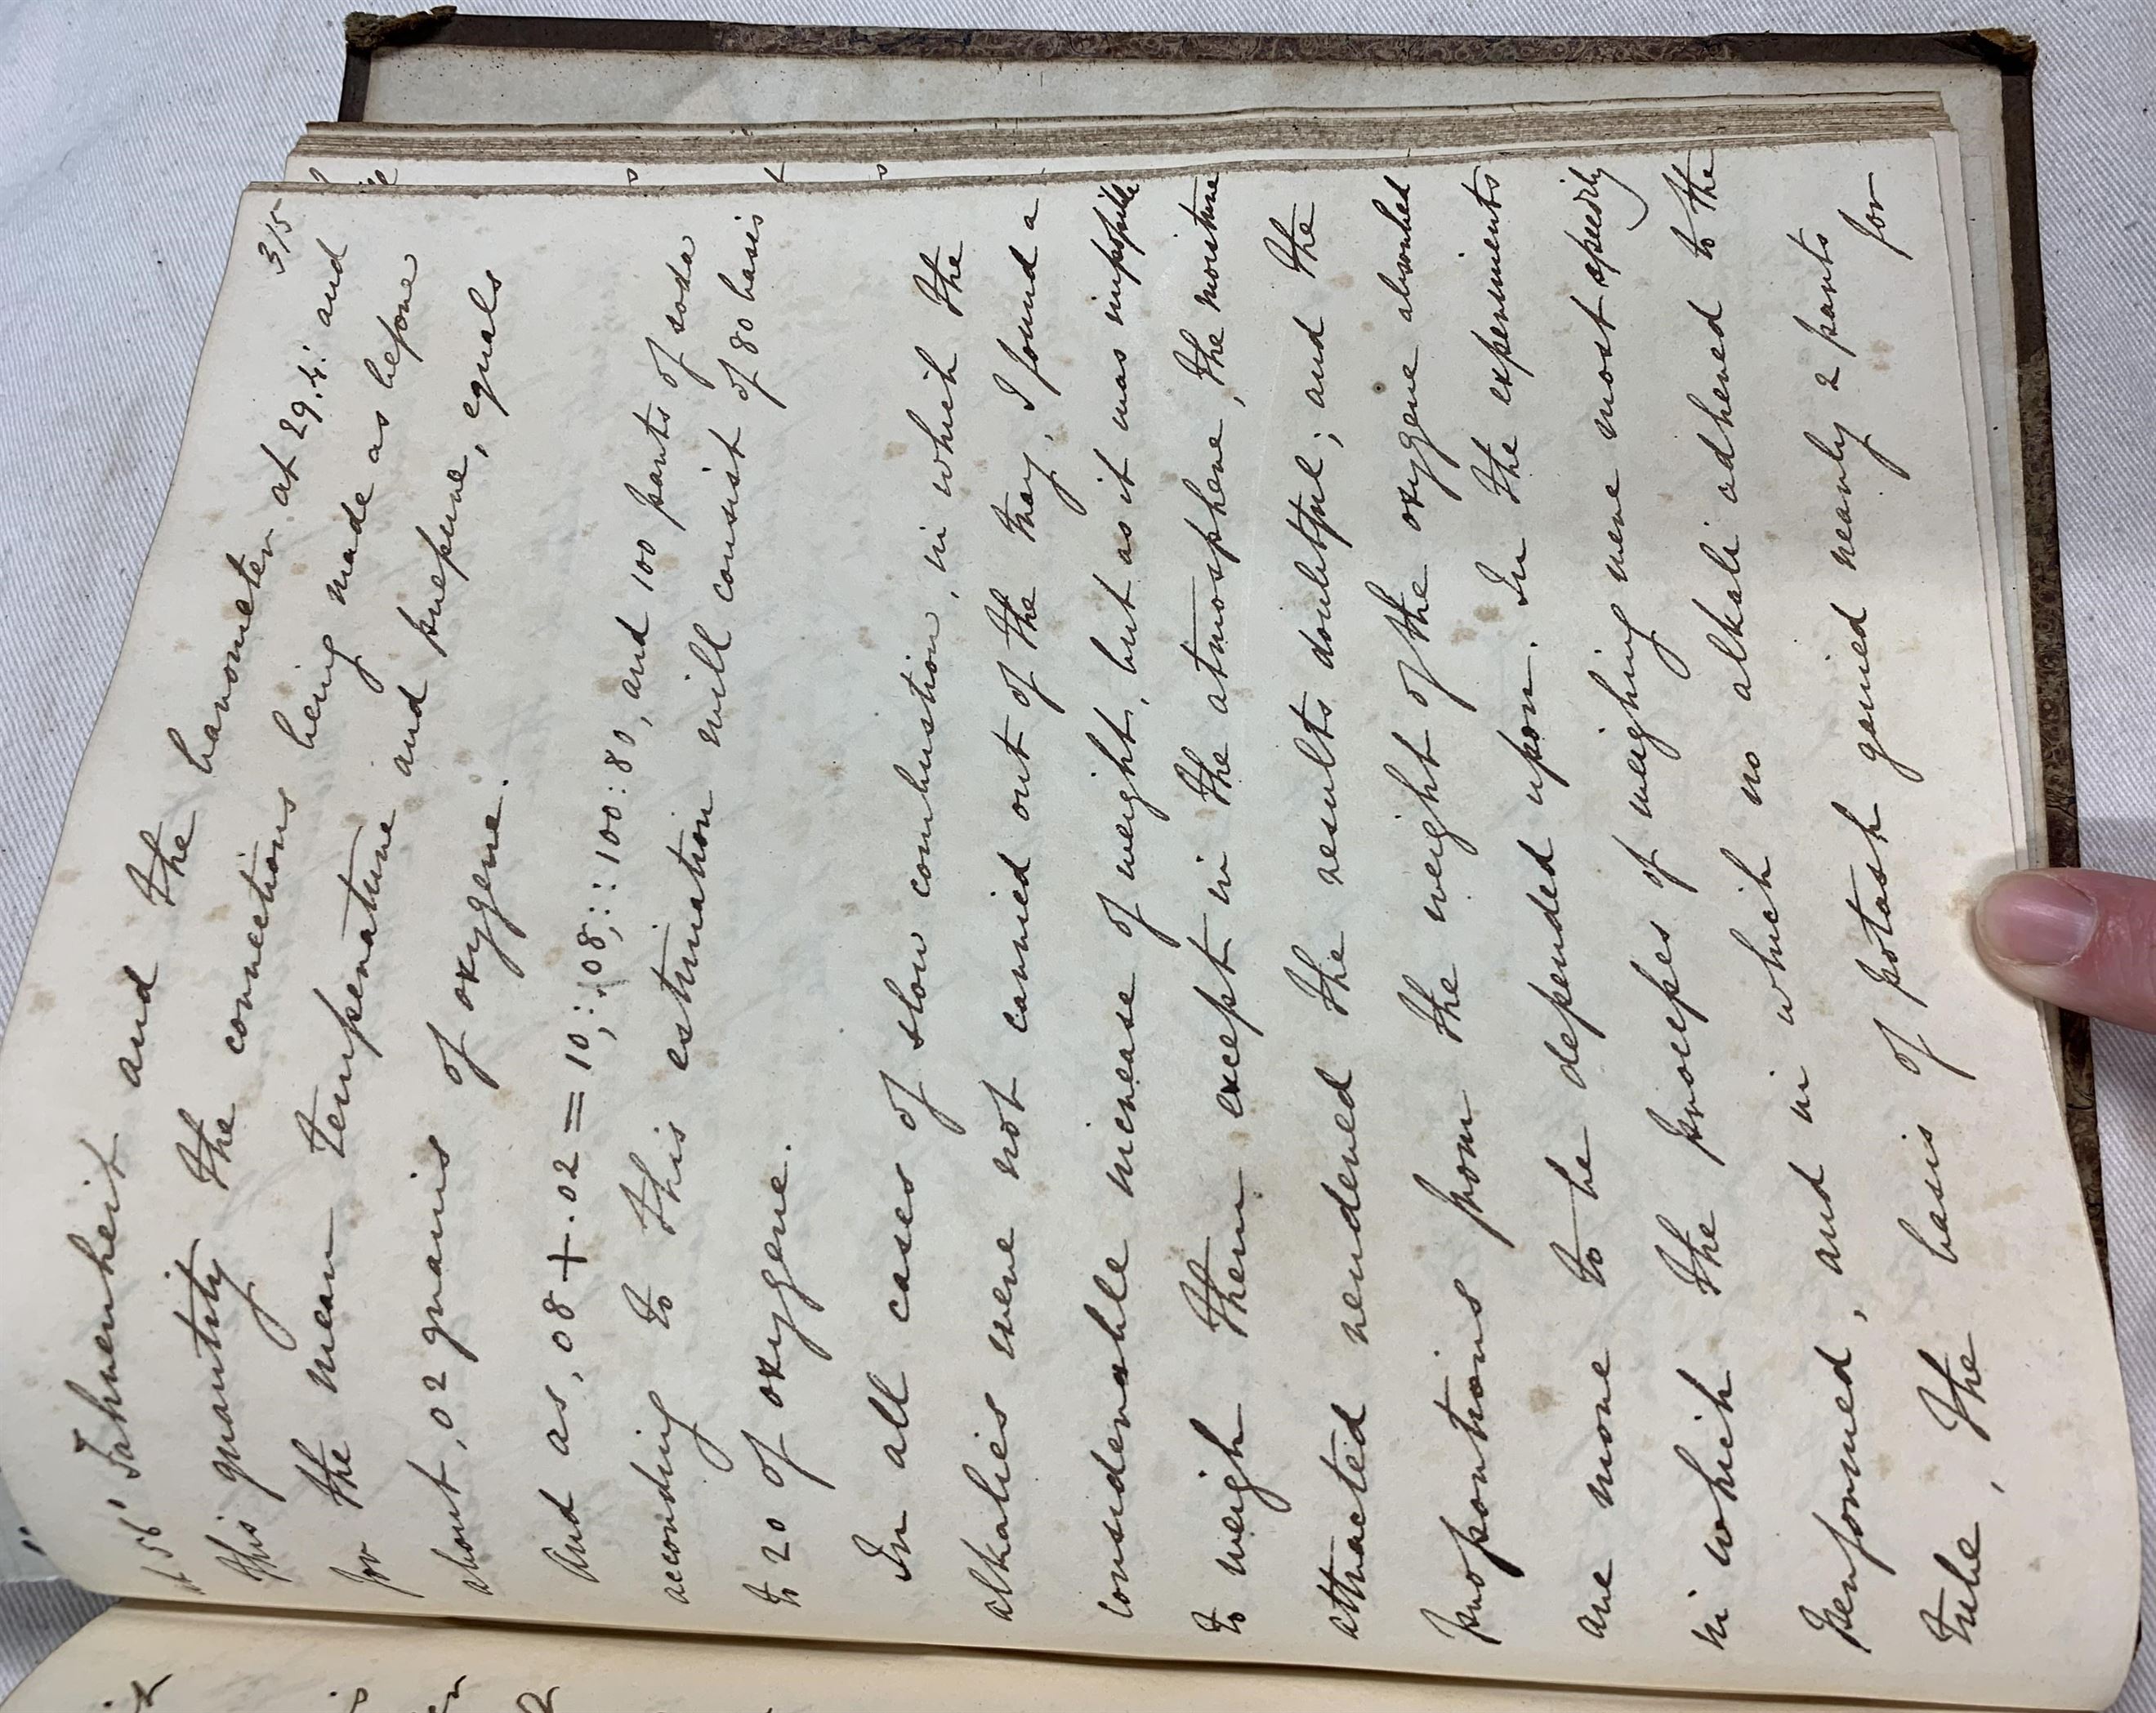 315
at 56° Fahrenheit and the barometer at 29.4: and
this quantity the corrections being made as before
for the mean temperature and pressure, equals
about ,02 grains of oxygene.
And as ,08 + .02 = 10,:,08,:: 100:80, and 100 parts of soda
according to this estimation will consist of 80 basis
to 20 of oxygene.
In all cases of slow combustion, in which the
alkalies were not carried out of the tray, I found a
considerable increase of weight, but as it was impossible
to weigh them except in the atmosphere, the moisture
attracted rendered the results doubtful; and the
proportions from the weight of the oxygene absorbed
are more to be depended upon. In the experiments
in which the processes of weighing were most speedily
performed, and in which no alkali adhered to the
tube, the basis of potash gained nearly 2 parts for